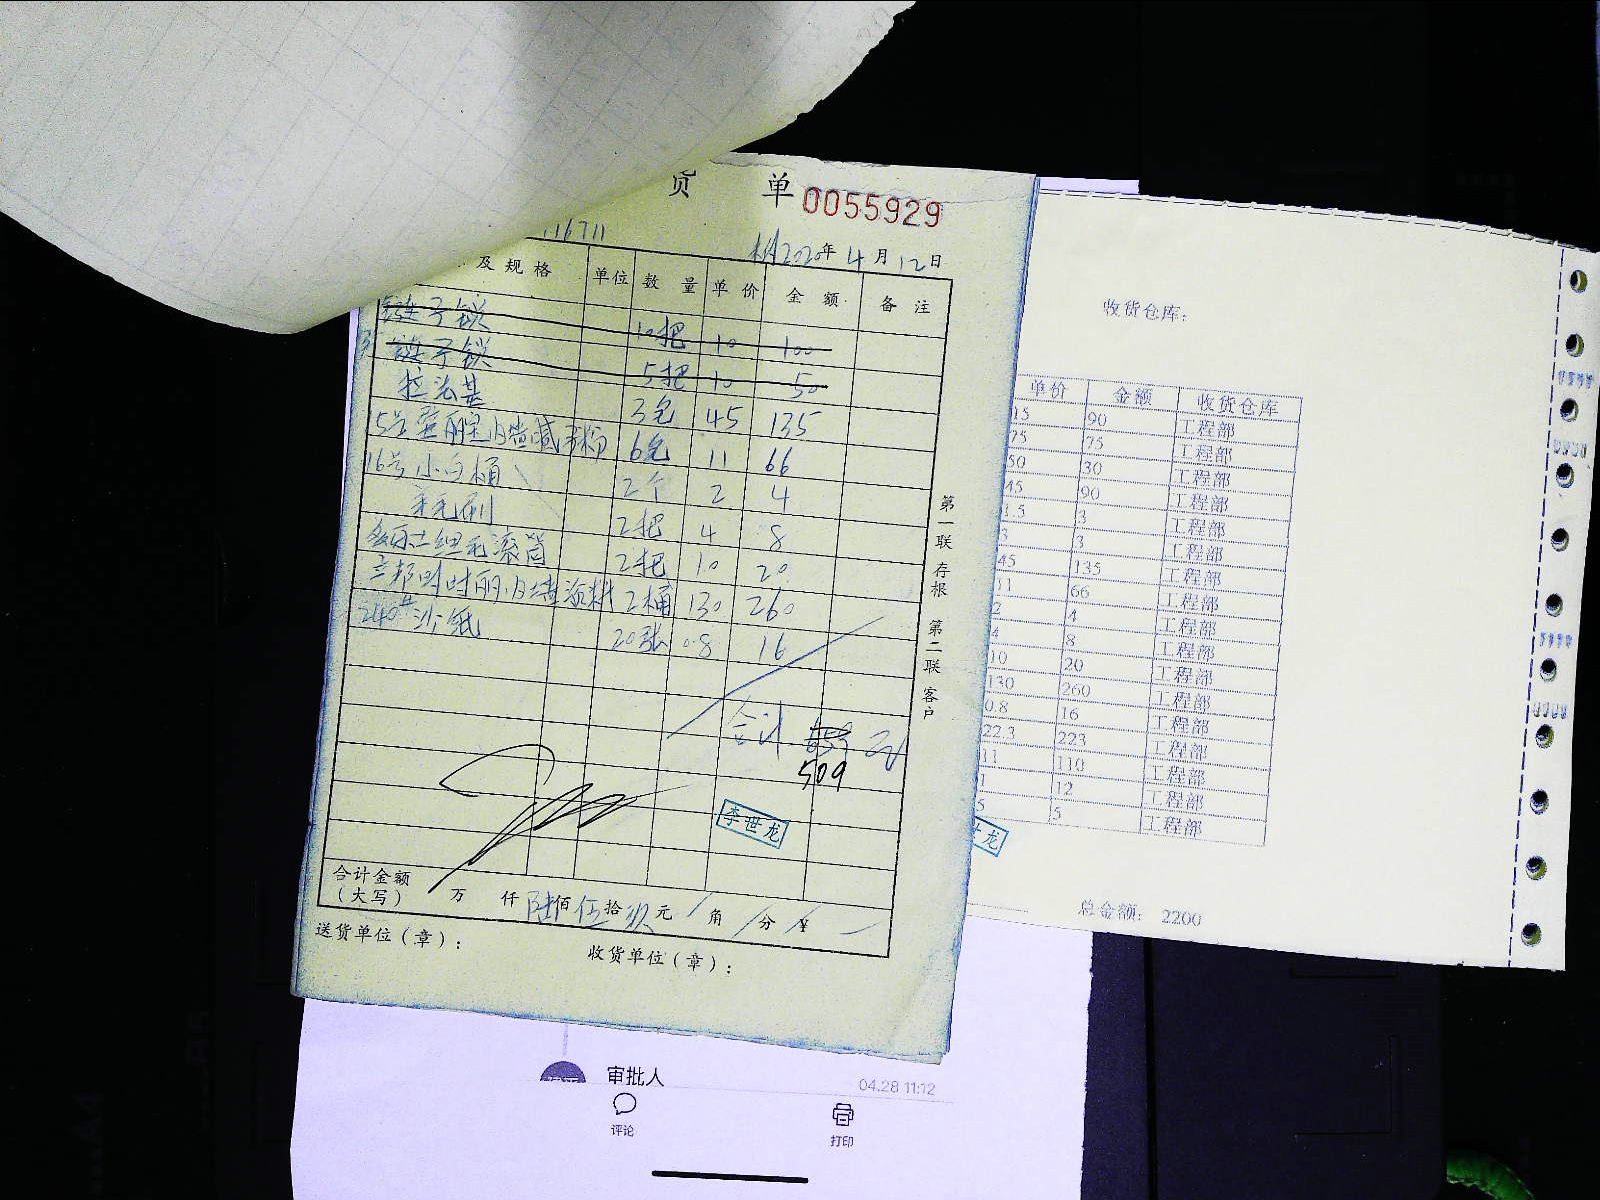 货 单 0055929
116711
2020年 4月 12日
及规格 单位 数量 单价 金额 备注
链子锁 10把 10 100
链子锁 5把 10 50
拉法基 3包 45 135
6包 11 66
16号小白桶 2个 2 4
羊毛刷 2把 4 8
2把 10 20
2桶 130 260
240#沙纸 20张 0.8 16
合计 元
509
李世龙
第一联 存根 第二联 客户
合计金额
(大写) 万 仟 陆佰 伍拾 玖元 角 分 ¥
送货单位(章):
收货单位(章):
收货仓库:
单价 金额 收货仓库
15 90 工程部
75 75 工程部
50 30 工程部
45 90 工程部
1.5 3 工程部
3 3 工程部
45 135 工程部
11 66 工程部
2 4 工程部
4 8 工程部
10 20 工程部
130 260 工程部
0.8 16 工程部
22.3 223 工程部
11 110 工程部
1 12 工程部
5 5 工程部
龙
总金额: 2200
审批人 04.28 11:12
评论 打印